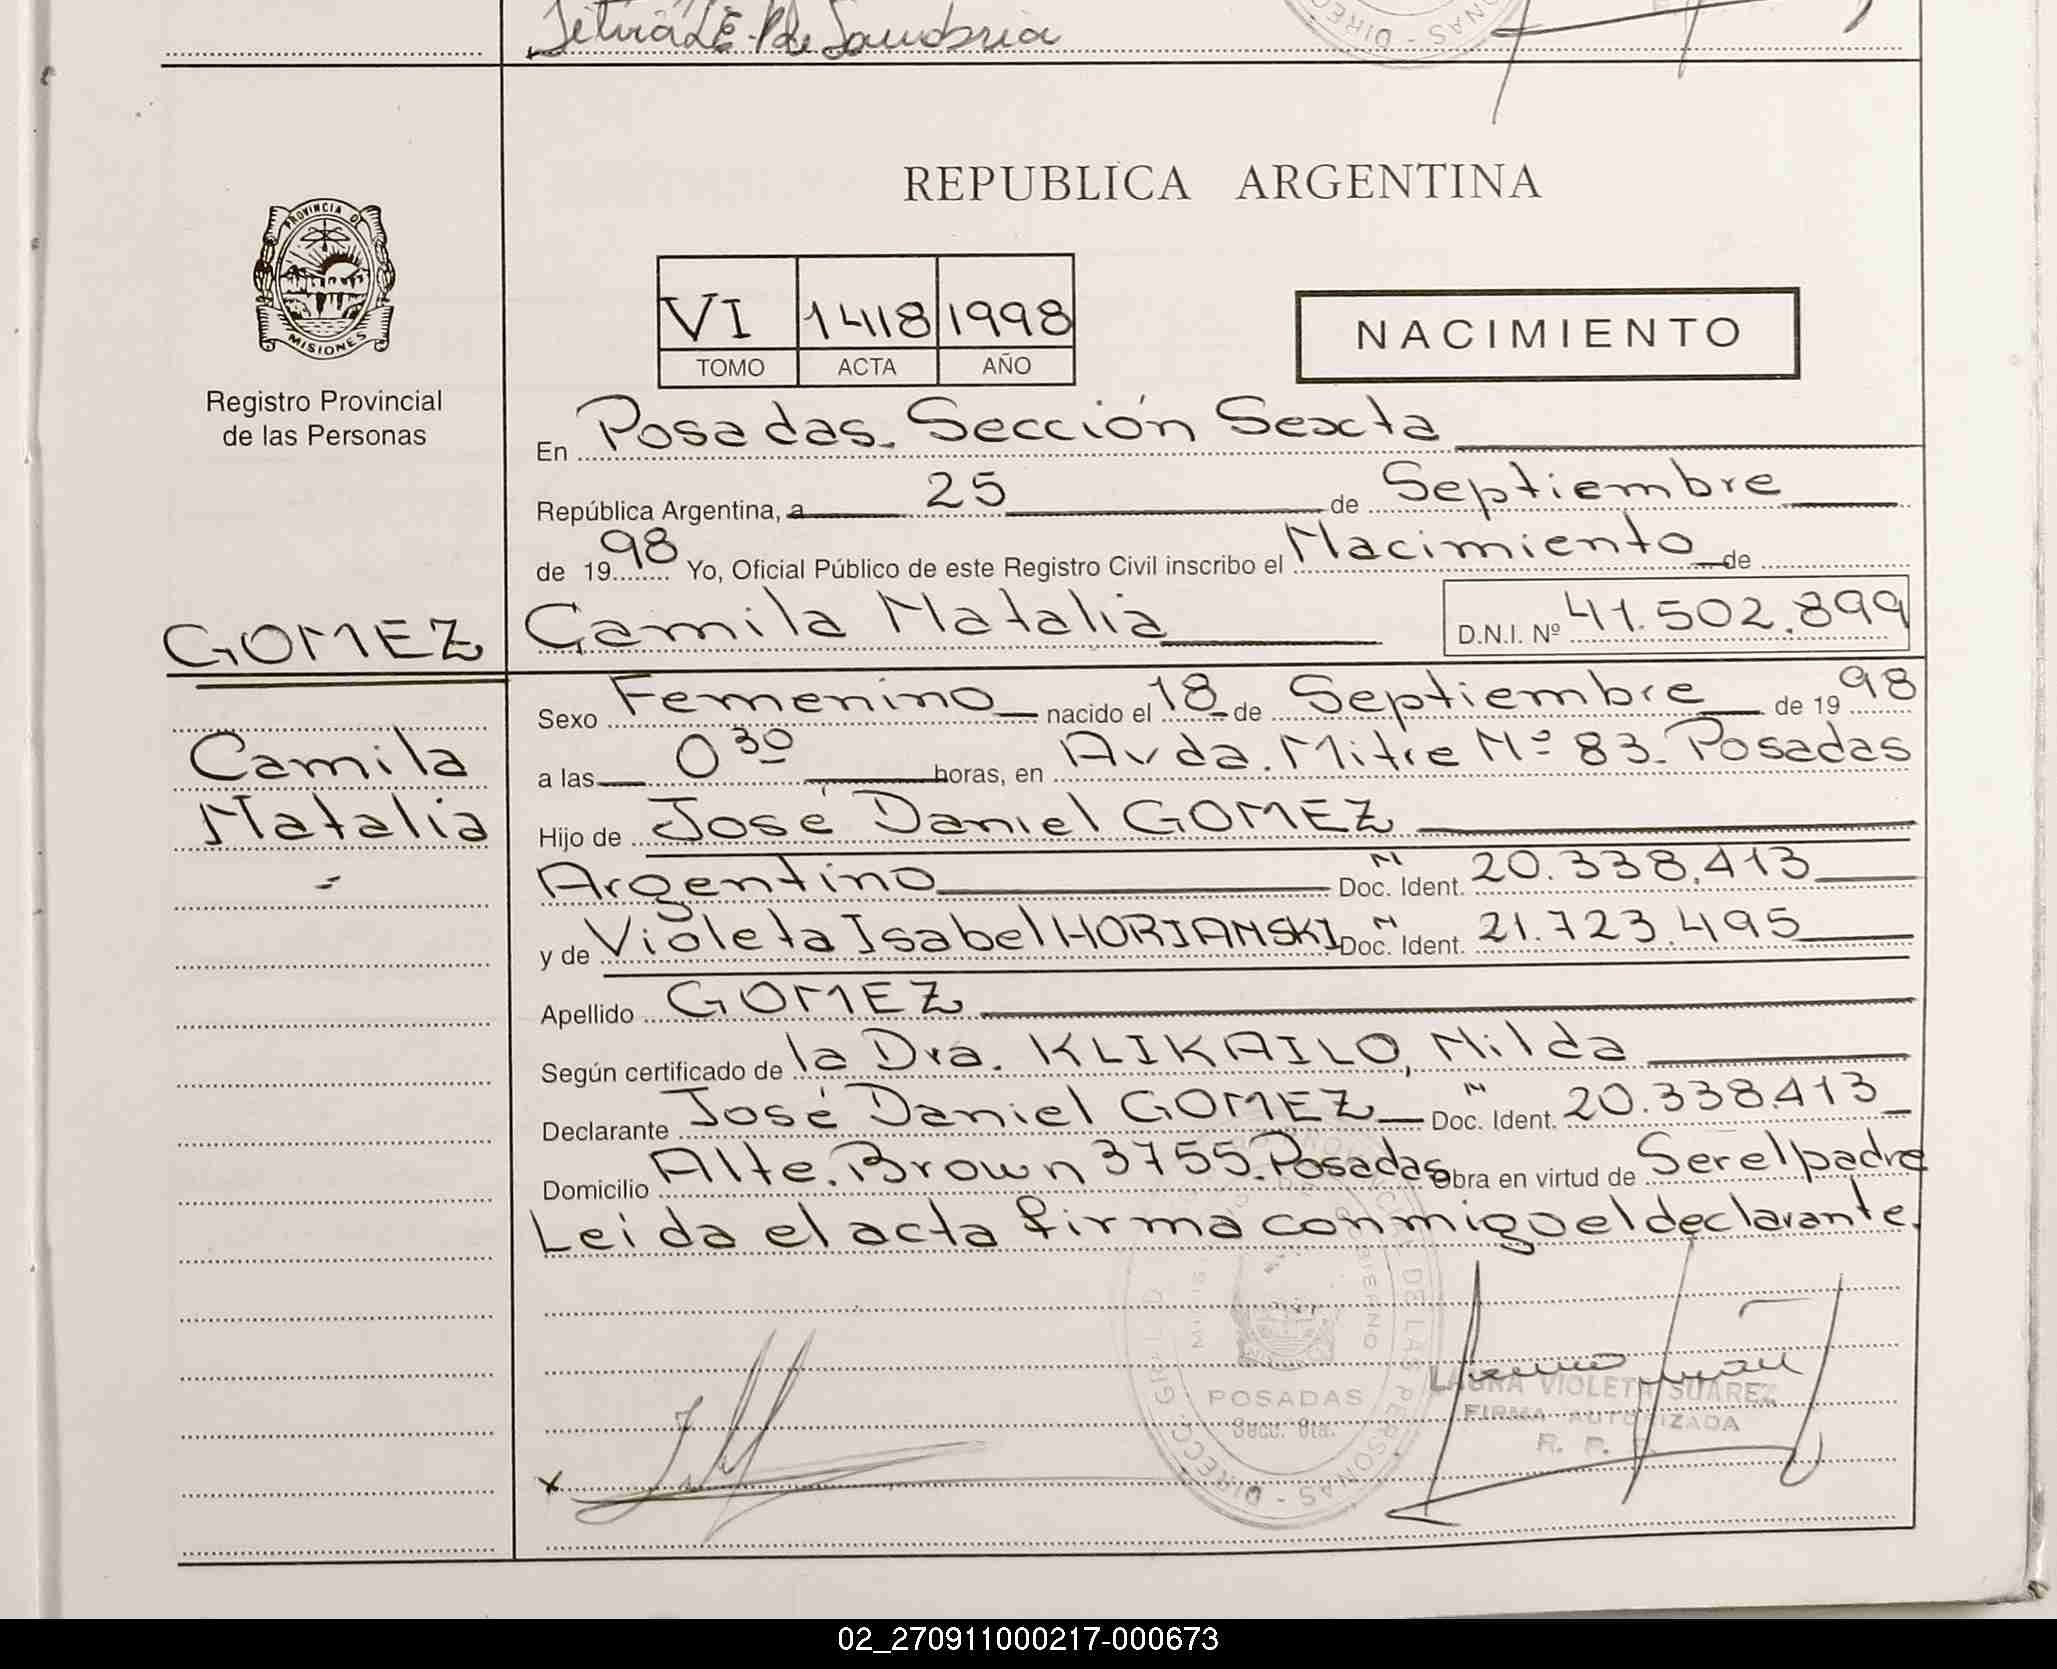 REPUBLICA ARGENTINA
PROVINCIA DE
MISIONES
Registro Provincial
de las Personas
VI 1418 1998
TOMO ACTA AÑO
NACIMIENTO
En Posadas. Sección Sexta
República Argentina, a 25 de Septiembre
de 1998 Yo, Oficial Público de este Registro Civil inscribo el Nacimiento de
GOMEZ
Camila Natalia D.N.I. Nº 41.502.899
Camila
Natalia
Sexo Femenino nacido el 18 de Septiembre de 1998
a las 0 30 horas, en Avda. Mitre Nº 83. Posadas
Hijo de José Daniel GOMEZ
Argentino Doc. Ident. N 20.338.413
y de Violeta Isabel HORIANSKI Doc. Ident. N 21.723.495
Apellido GOMEZ
Según certificado de la Dra. KLIKAILO, Nilda
Declarante José Daniel GOMEZ Doc. Ident. N 20.338.413
Domicilio Alte. Brown 3755. Posadas Obra en virtud de Ser el padre
Leida el acta firma conmigo el declarante.
POSADAS
Secc. 6ta.
LAURA VIOLETA SUAREZ
FIRMA AUTORIZADA
R. P. P.
x
02_270911000217-000673